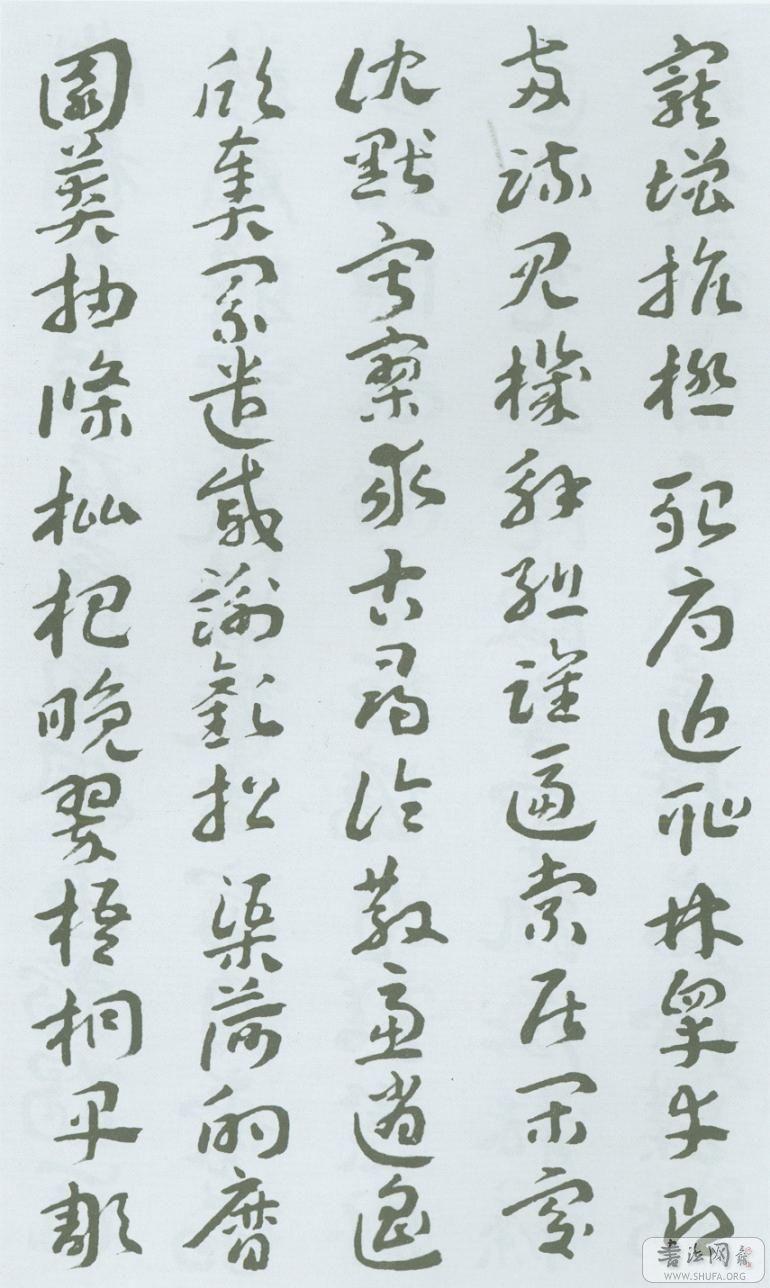 寵增抗極殆辱近恥林皋幸即
兩疏見機解組誰逼索居閑處
沈默寂寥求古尋論散慮逍遙
欣奏累遣慼謝歡招渠荷的歷
園莽抽條枇杷晚翠梧桐早彫
書法网
WWW.SHUFA.ORG